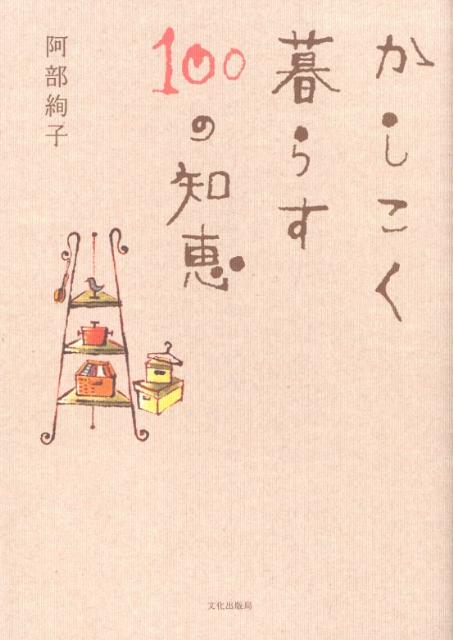 かしこく
暮らす
100の知恵
阿部絢子
文化出版局